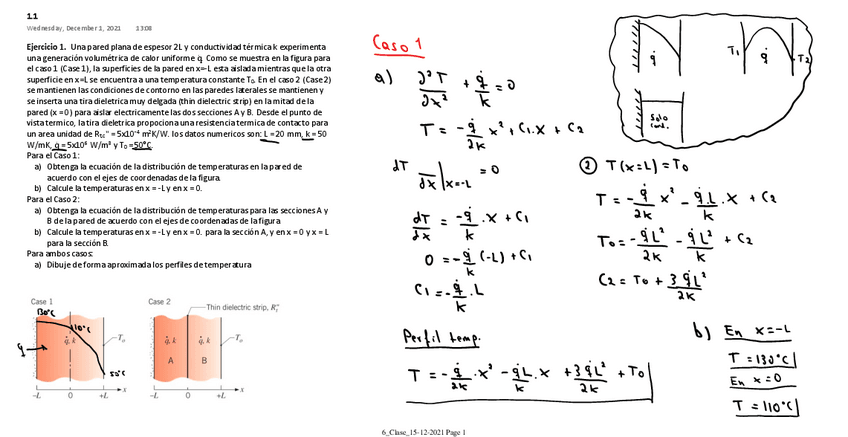 1.1
Wednesday, December 1, 2021 13:08
Ejercicio 1. Una pared plana de espesor 2L y conductividad térmica k experimenta
una generación volumétrica de calor uniforme q̇. Como se muestra en la figura para
el caso 1 (Case 1), la superficies de la pared en x=-L esta aislada mientras que la otra
superficie en x=L se encuentra a una temperatura constante T₀. En el caso 2 (Case 2)
se mantienen las condiciones de contorno en las paredes laterales se mantienen y
se inserta una tira dieletrica muy delgada (thin dielectric strip) en la mitad de la
pared (x =0) para aislar electricamente las dos secciones A y B. Desde el punto de
vista termico, la tira dieletrica propociona una resistencia termica de contacto para
un area unidad de Rₜc'' =5x10⁻⁴ m²K/W. los datos numericos son: L =20 mm, k =50
W/mK, q̇ =5x10⁶ W/m³ y T₀ =50°C.
Para el Caso 1:
a) Obtenga la ecuación de la distribución de temperaturas en la pared de
acuerdo con el ejes de coordenadas de la figura.
b) Calcule la temperaturas en x = -L y en x = 0.
Para el Caso 2:
a) Obtenga la ecuación de la distribución de temperaturas para las secciones A y
B de la pared de acuerdo con el ejes de coordenadas de la figura
b) Calcule la temperaturas en x = -L y en x = 0. para la sección A, y en x = 0 y x = L
para la sección B.
Para ambos casos:
a) Dibuje de forma aproximada los perfiles de temperatura
Case 1
130°C
110°C
q̇, k
T₀
q
50°C
-L 0 +L x
Case 2
Thin dielectric strip, Rₜ''
q̇, k q̇, k
T₀
A B
-L 0 +L x
Caso 1
a) ∂²T/∂x² + q̇/k = 0
T = -q̇/2k x² + C1.x + C2
dT/dx|x=-L = 0
dT/dx = -q̇/k .x + C1
0 = -q̇/k (-L) + C1
C1 = -q̇/k .L
Perfil temp.
T = -q̇/2k .x² - q̇L/k .x + 3q̇L²/2k + T₀
q̇
T1 q̇ T2
Solo
cond.
② T(x=L) = T₀
T = -q̇/2k x² - q̇L/k .x + C2
T₀ = -q̇L²/2k - q̇L²/k + C2
C2 = T₀ + 3q̇L²/2k
b) En x=-L
T = 130°C
En x=0
T = 110°C
6_Clase_15-12-2021 Page 1